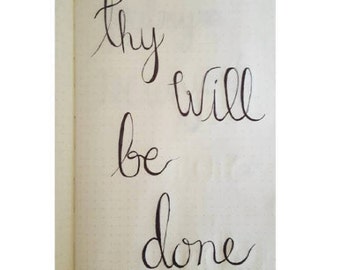 thy
will
be
done